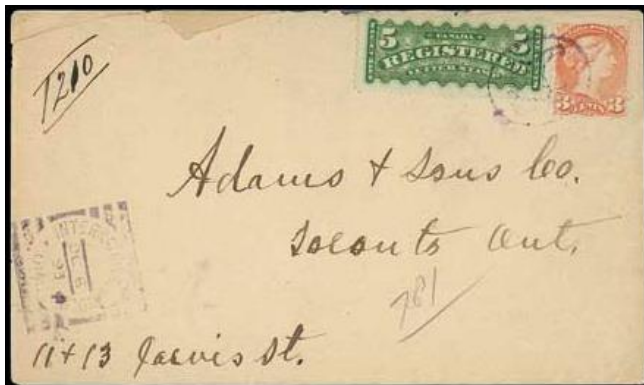 1210
CANADA
5 REGISTERED 5
LETTER STAMP
3 CENTS 3
Adams & Sons Co.
Toronto Ont.
781
11 + 13 Jarvis St.